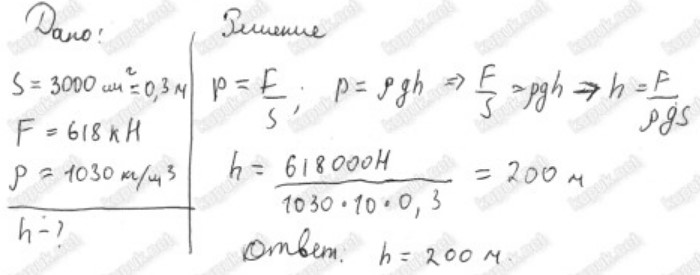 Дано:
S = 3000 см² = 0,3 м
F = 618 кН
ρ = 1030 кг/м3
h - ?
Решение
p = F/S; p = ρgh ⇒ F/S = ρgh ⇒ h = F/ρgS
h = 618000Н / 1030·10·0,3 = 200 м
Ответ. h = 200 м.